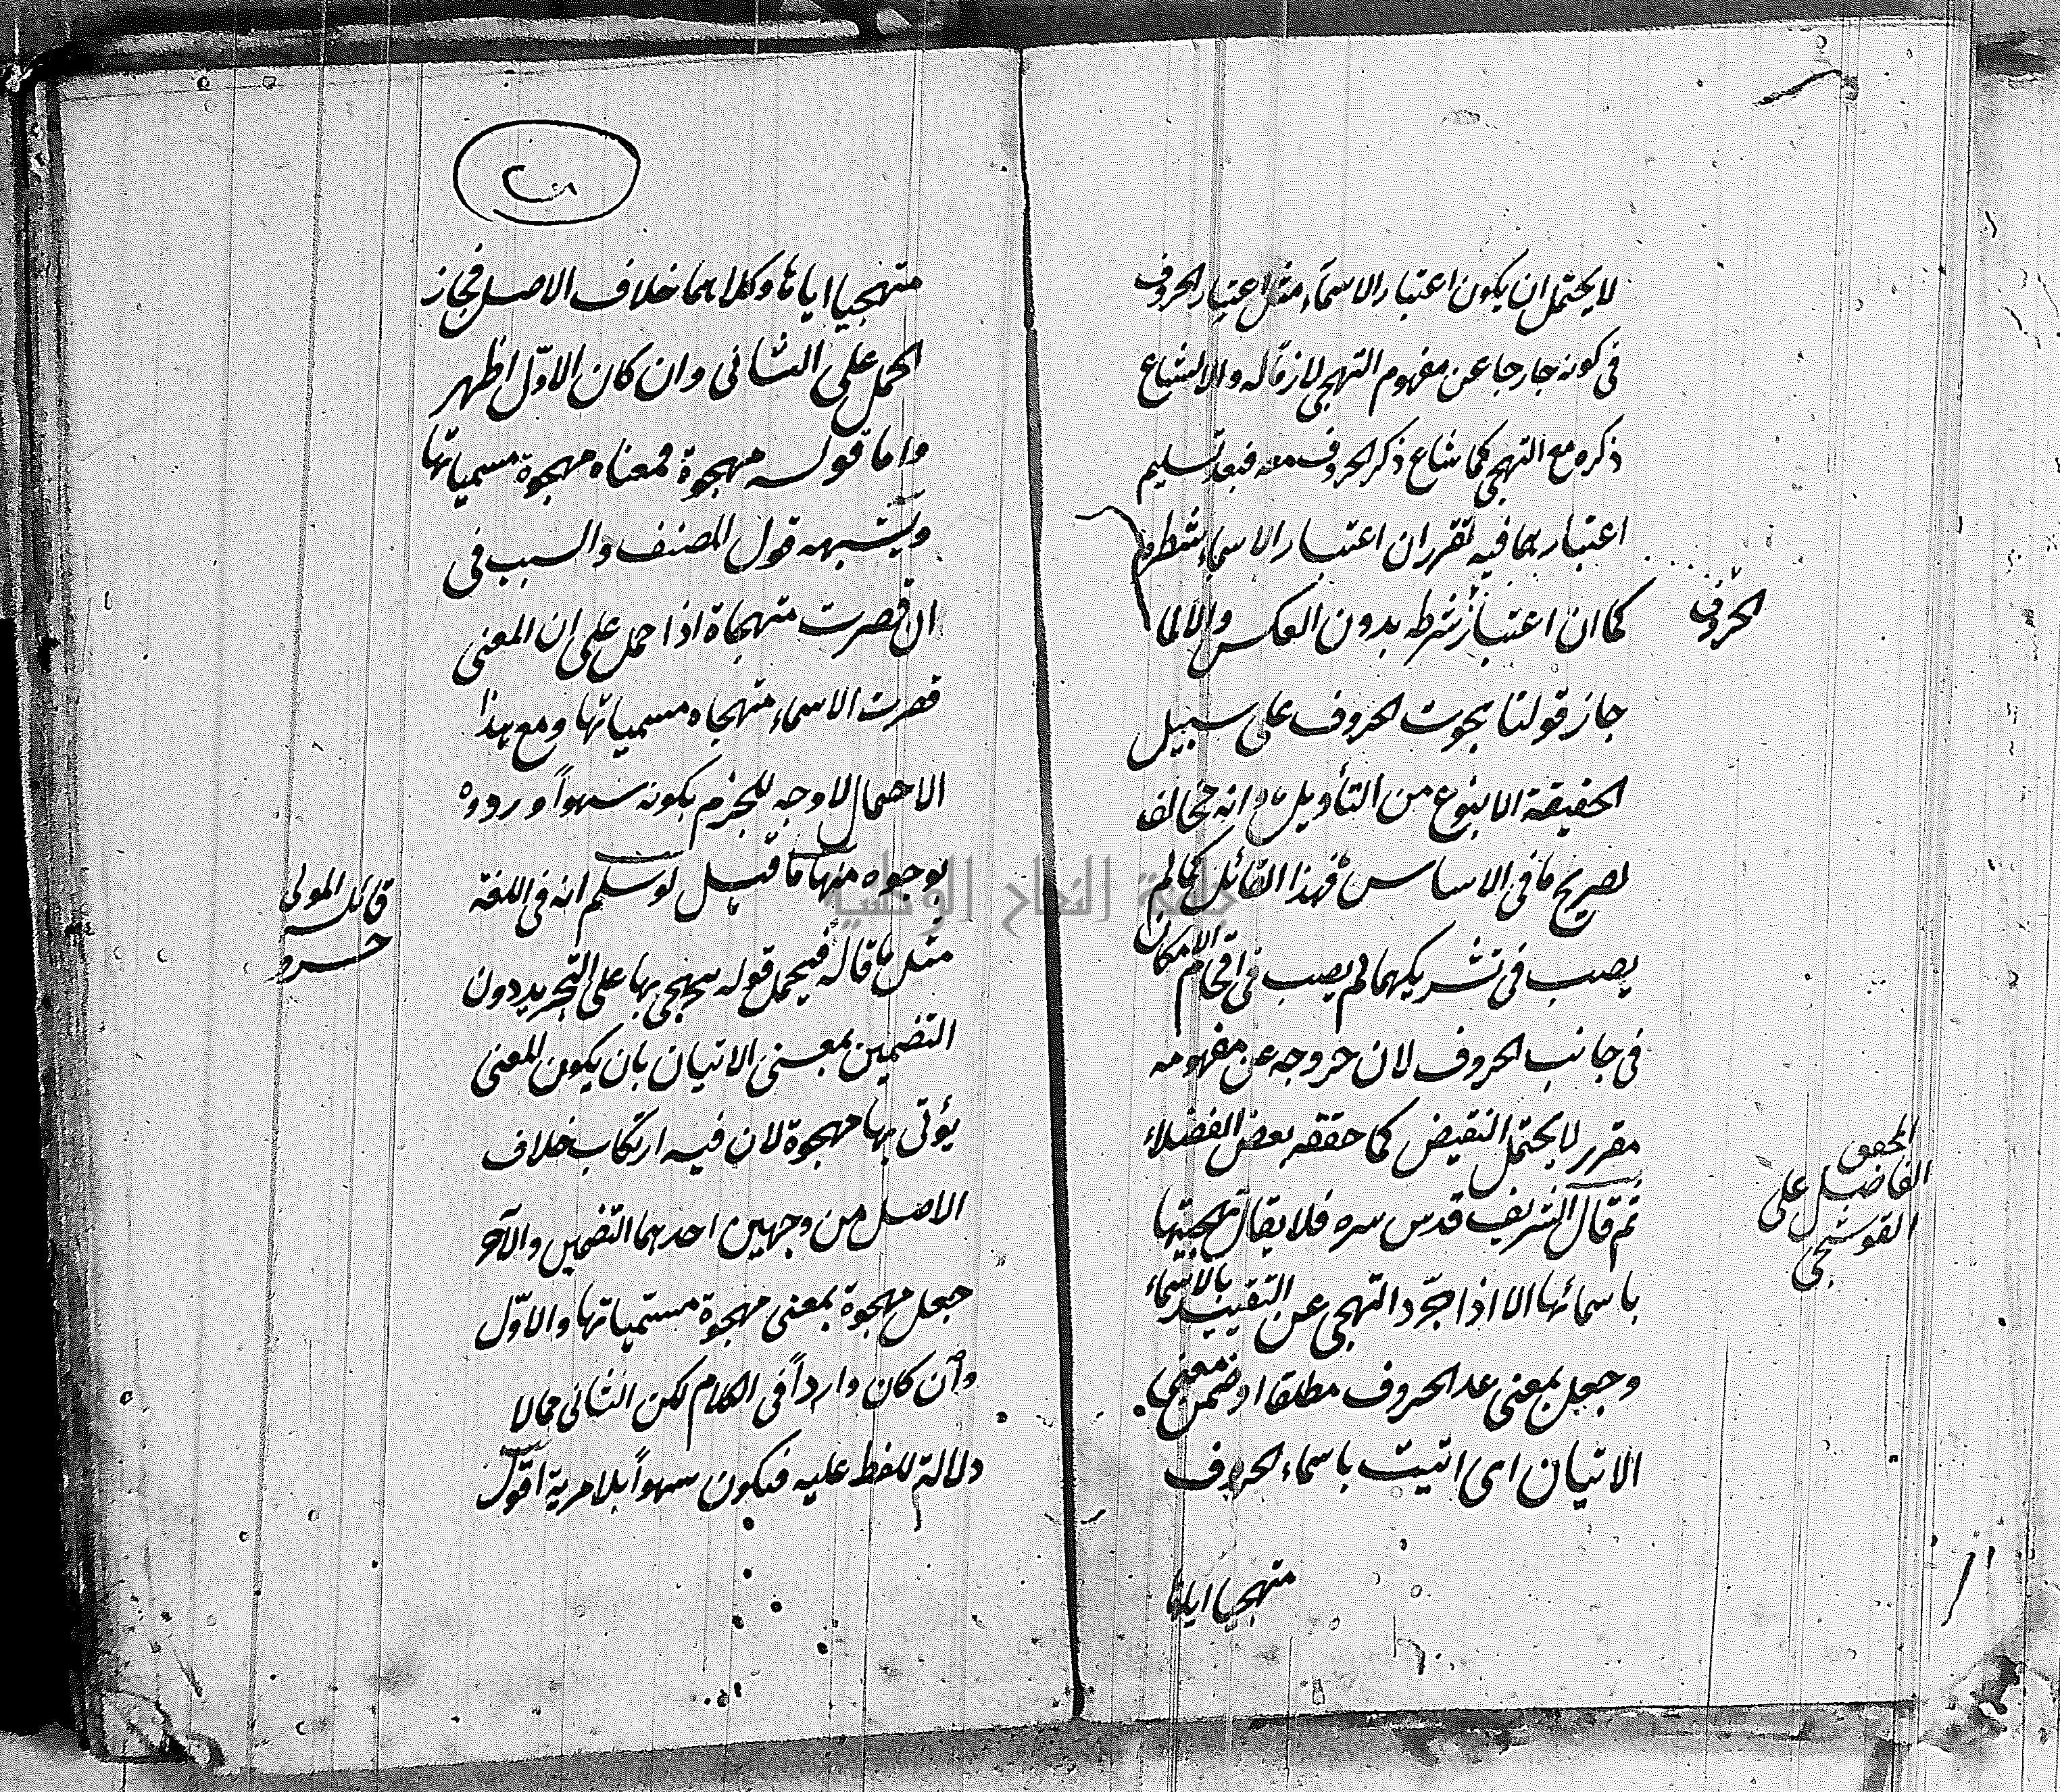 لا يحتمل ان يكون اعتبار الاسماء مثل اعتبار الحروف
فى كونه خارجا عن مفهوم التهجى لازما له والا لشاع
ذكره مع التهجى كما شاع ذكر الحروف معه فبعد تسليم
اعتبارهما فيه تقرر ان اعتبار الاسماء شطره
كما ان اعتبار شرطه بدون العكس والا لما
الحروف
جاز قولنا هجوت الحروف على سبيل
الحقيقة الا بنوع من التأويل مع انه مخالف
لصريح ما فى الاساس فهذا القائل كما لم
يصب فى تشريكهما لم يصب فى اقحام الامكان
فى جانب الحروف لان خروجه عن مفهومه
مقرر لا يحتمل النقيض كما حققه بعض الفضلاء
المحقق
الفاضل على
القوشجى
ثم قال الشريف قدس سره فلا يقال تهجيتها
باسمائها الا اذا جرّد التهجى عن التقييد بالاسماء
وجعل بمعنى عد الحروف مطلقا او ضمن معنى
الاتيان اى اتيت باسماء الحروف
متهجيا اياها
متهجيا اياها وكلاهما خلاف الاصل فجاز
الحمل على الثانى وان كان الاوّل اظهر
واما قوله مهجوة فمعناه مهجوة مسمياتها
ويشبهه قول المصنف والسبب فى
ان قصرت متهجاة اذا حمل على ان المعنى
قصرت الاسماء متهجاه مسمياتها ومع هذا
الاحتمال لا وجه للجزم بكونه سهواً وردوه
بوجوه منها ما قيل لو سلم انه فى اللغة
قائله المولى
خسرو
مثل ما قاله فيحمل قوله يتهجى بها على التجريد دون
التضمين بمعنى الاتيان بان يكون المعنى
يؤتى بها مهجوة لان فيه ارتكاب خلاف
الاصل من وجهين احدهما التضمين والآخر
جعل مهجوة بمعنى مهجوة مسمياتها والاوّل
وان كان وارداً فى الكلام لكن الثانى مما لا
دلالة للفظ عليه فيكون سهواً بلا مرية اقول
جامعة النجاح الوطنية